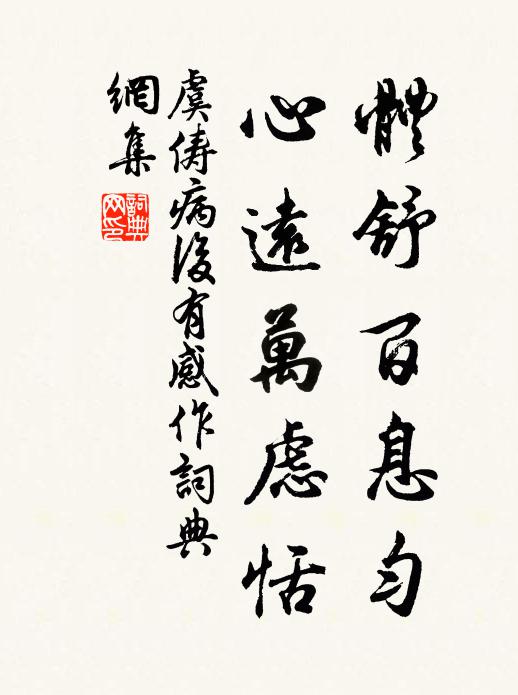 體舒百息勻
心遠萬慮恬
虞儔病後有感作詞典
網集
詞典
网印